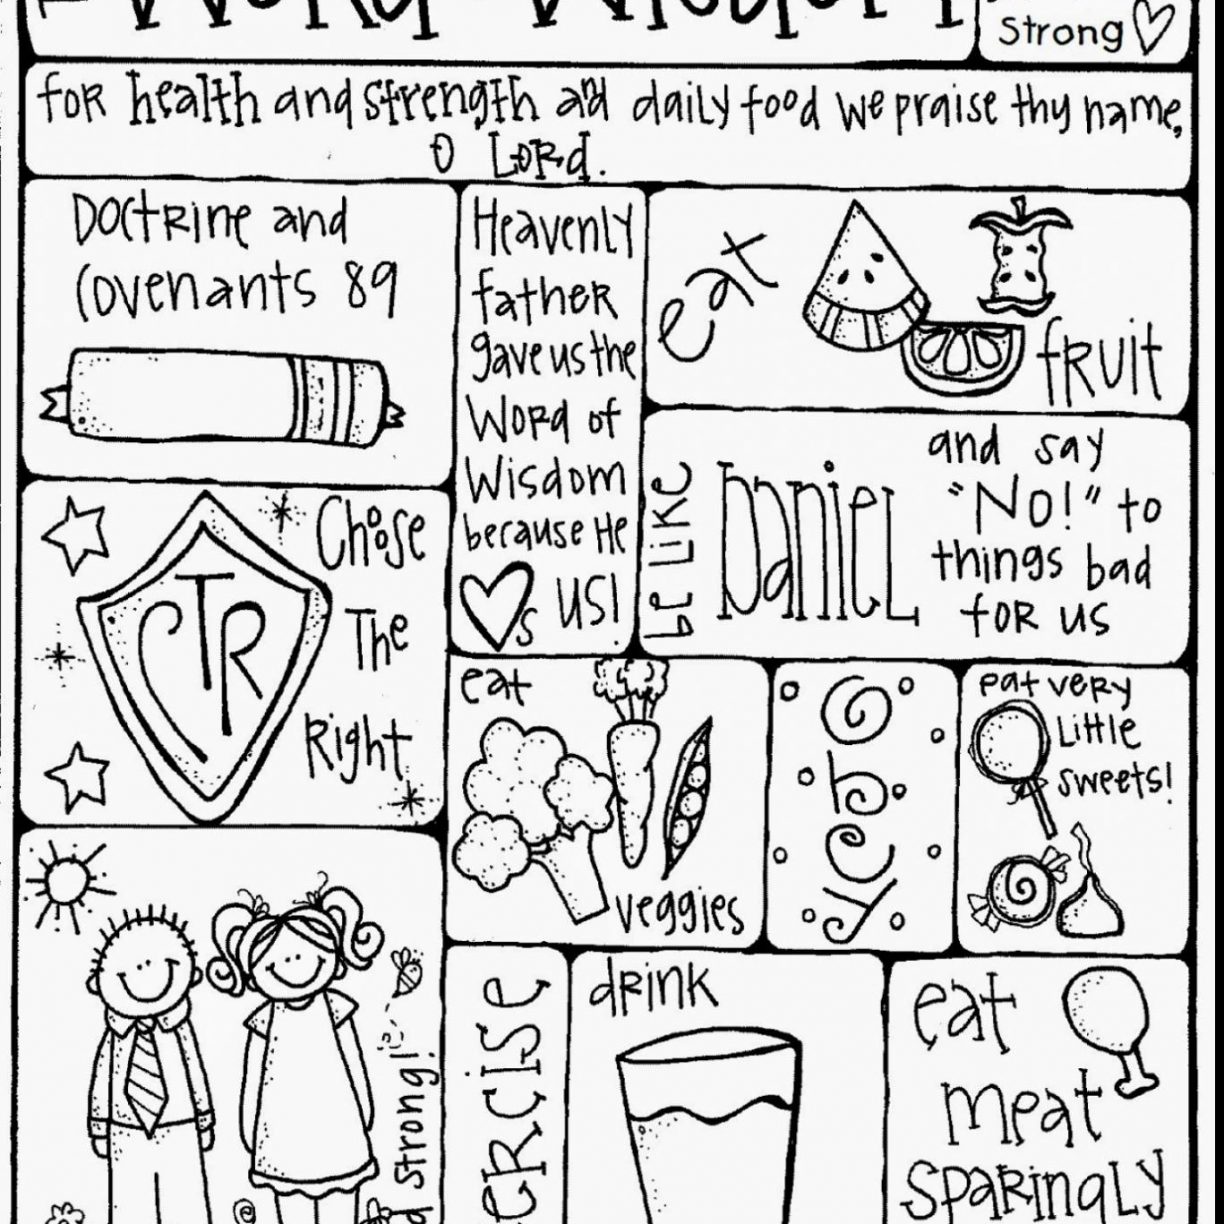 Word of Wisdom
Strong
for health and strength and daily food we praise thy name,
O Lord.
Doctrine and
Covenants 89
Heavenly
father
gave us the
Word of
Wisdom
because He
s us!
eat
fruit
be like
Daniel
and say
"No!" to
things bad
for us
CTR
Choose
The
Right
eat
veggies
yoga
eat very
Little
sweets!
strong!
drink
eat
meat
sparingly